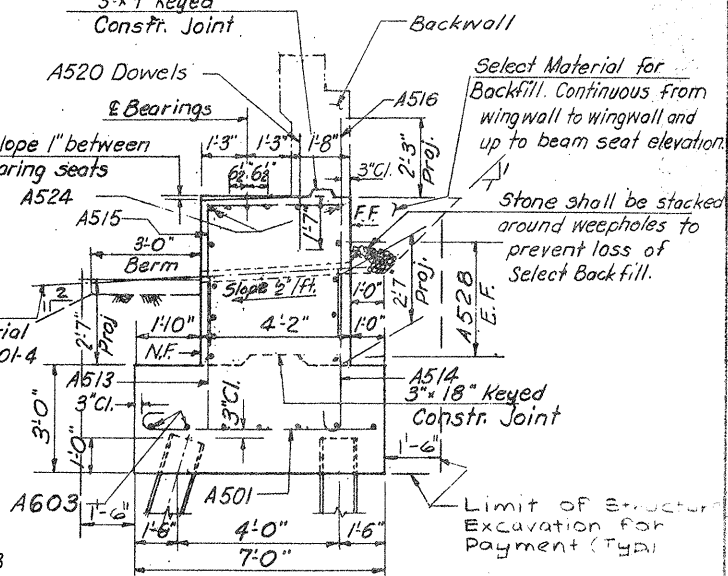 3"x 9" Keyed
Constr. Joint
Backwall
A520 Dowels
Select Material for
Backfill. Continuous from
wingwall to wingwall and
up to beam seat elevation
℄ Bearings
A516
1'-3" 1'-3" 1'-8"
2'-3"
Proj.
lope 1" between
aring seats
6½" 6½"
3"Cl.
1
A524
Stone shall be stacked
around weepholes to
prevent loss of
Select Backfill.
A515
1'-7"
F.F.
3'-0"
Berm
Slope ½"/ft.
1'-0"
2'-7"
Proj.
A528
E.F.
2
1
rial
01-4
2'-7"
Proj
1'-10" 4'-2" 1'-0"
N.F.
A513
A514
3"x 18" Keyed
Constr. Joint
3"Cl.
3"Cl.
3'-0"
1'-0"
1'-6"
A603
1'-6"
A501
Limit of Structur
Excavation for
Payment (Typ.)
1'-6" 4'-0" 1'-6"
7'-0"